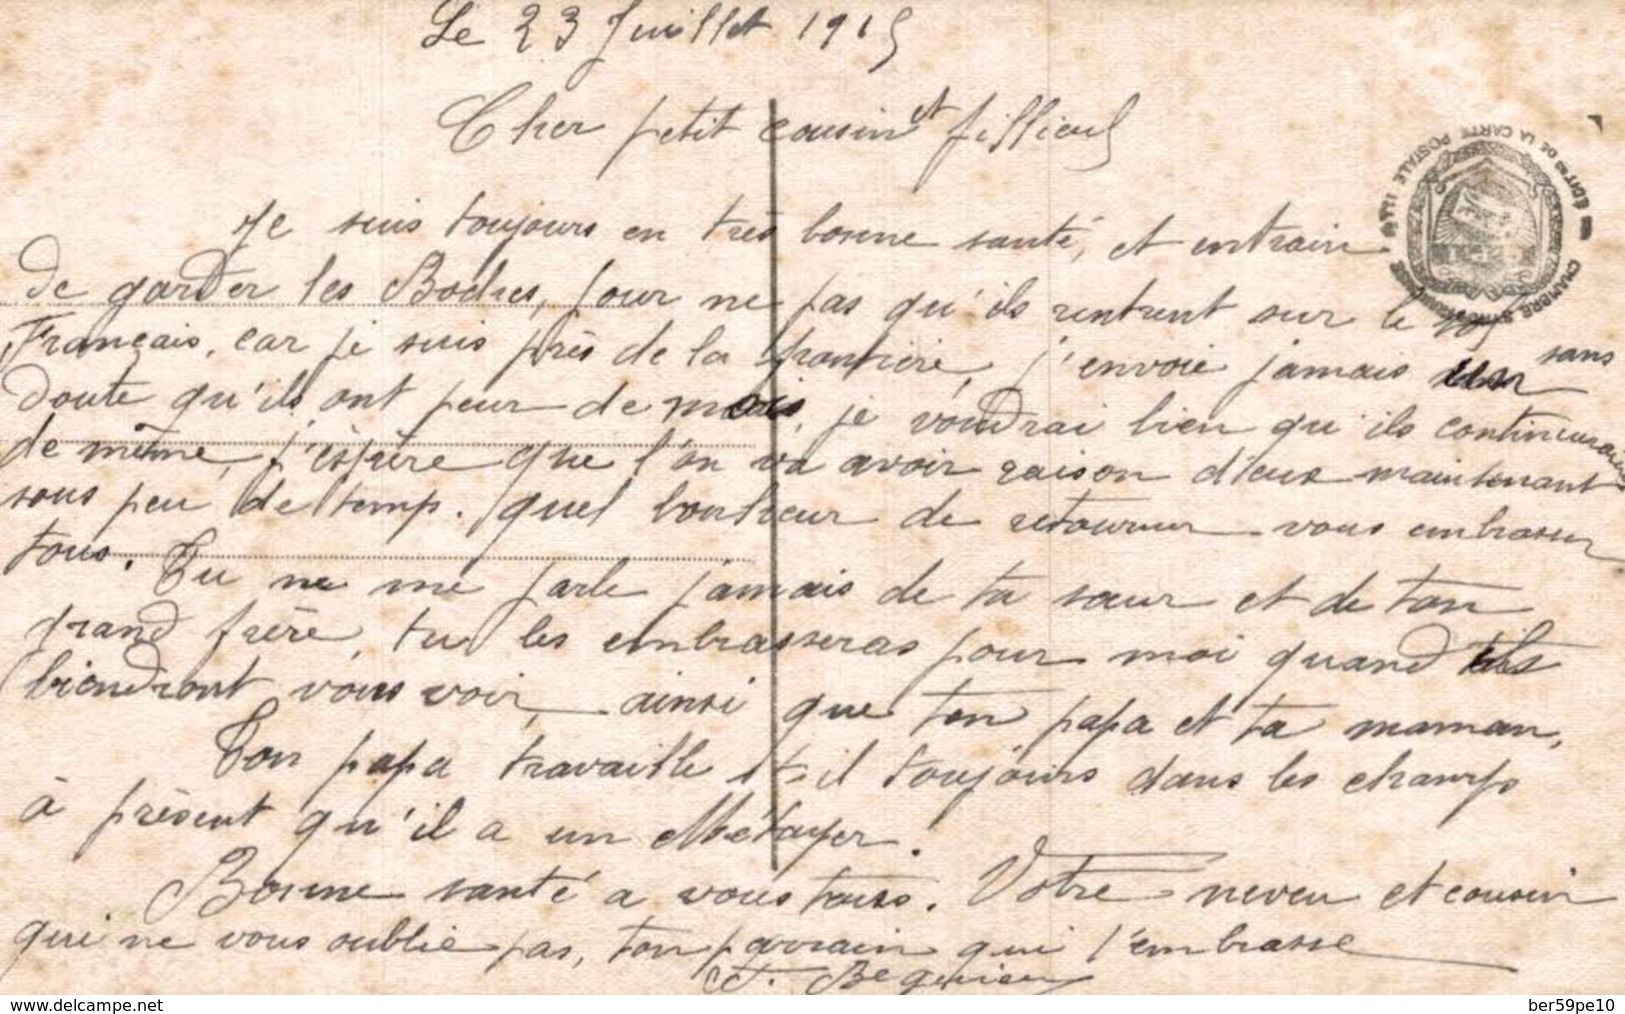 Le 23 Juillet 1915
Cher petit cousin et fillieul
Je suis toujours en très bonne santé, et entrain
de garder les Boches, pour ne pas qu'ils rentrent sur le sol
Français, car je suis près de la frontière, j'envoie jamais sans
doute qu'ils ont peur de mois, je voudrai bien qu'ils continueraient
de même, j'éspère que l'on va avoir raison d'eux maintenant
sous peu de temp. quel bonheur de retourner vous embrasser
tous. Tu ne me parle jamais de ta sœur et de ton
grand frère, tu les embrasseras pour moi quand ils
biendront vous voir, ainsi que ton papa et ta maman,
Ton papa travaille t-il toujours dans les champs
à présent qu'il a un Métayer.
Bonne santé a vous tous. Votre neveu et cousin
qui ne vous oublie pas, ton parrain qui t'embrasse
CHAMBRE SYNDICALE FRANÇAISE DES ÉDITRS DE LA CARTE POSTALE ILLÉE
www.delcampe.net
ber59pe10